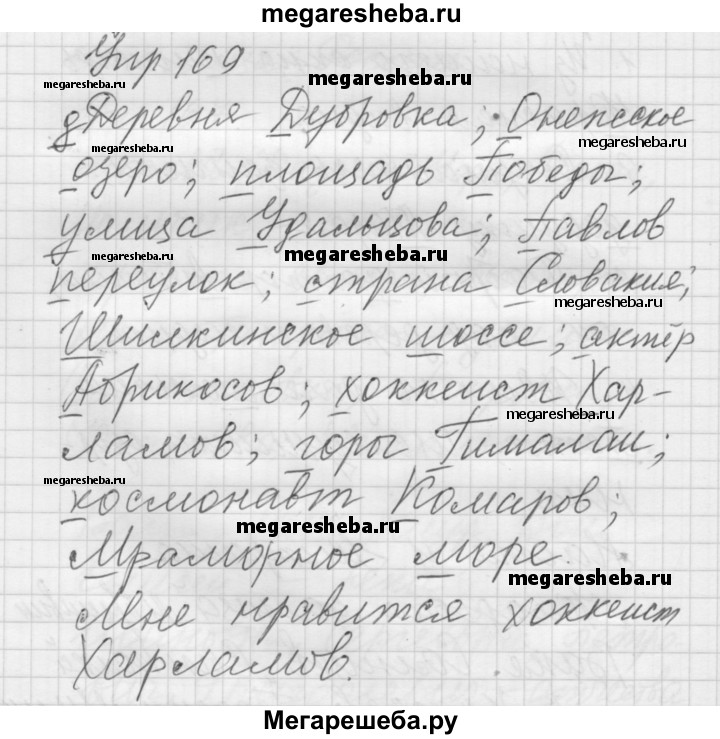 megaresheba.ru
Упр 169
megaresheba.ru
megaresheba.ru
дДеревня Дубровка; Онежское
megaresheba.ru
megaresheba.ru
озеро; площадь Победы;
megaresheba.ru
улица Удальцова; Павлов
megaresheba.ru
переулок; страна Словакия;
megaresheba.ru
Шилкинское шоссе; актёр
Абрикосов; хоккеист Хар-
megaresheba.ru
ламов; горы Гималаи;
megaresheba.ru
космонавт Комаров;
megaresheba.ru
Мраморное море.
megaresheba.ru
Мне нравится хоккеист
Харламов.
Мегарешеба.ру